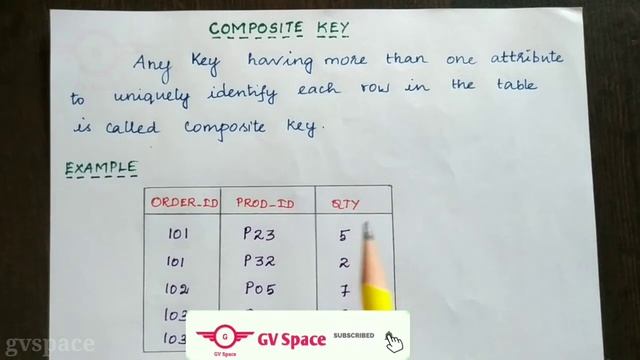 COMPOSITE KEY
Any Key having more than one attribute
to uniquely identify each row in the table
is called Composite Key.
EXAMPLE
ORDER_ID PROD_ID QTY
101 P23 5
101 P32 2
102 P05 7
103
103
G
GV Space
GV Space
SUBSCRIBED
gvspace